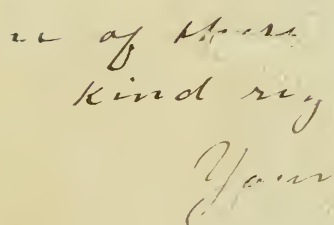 of these
kind reg
Your